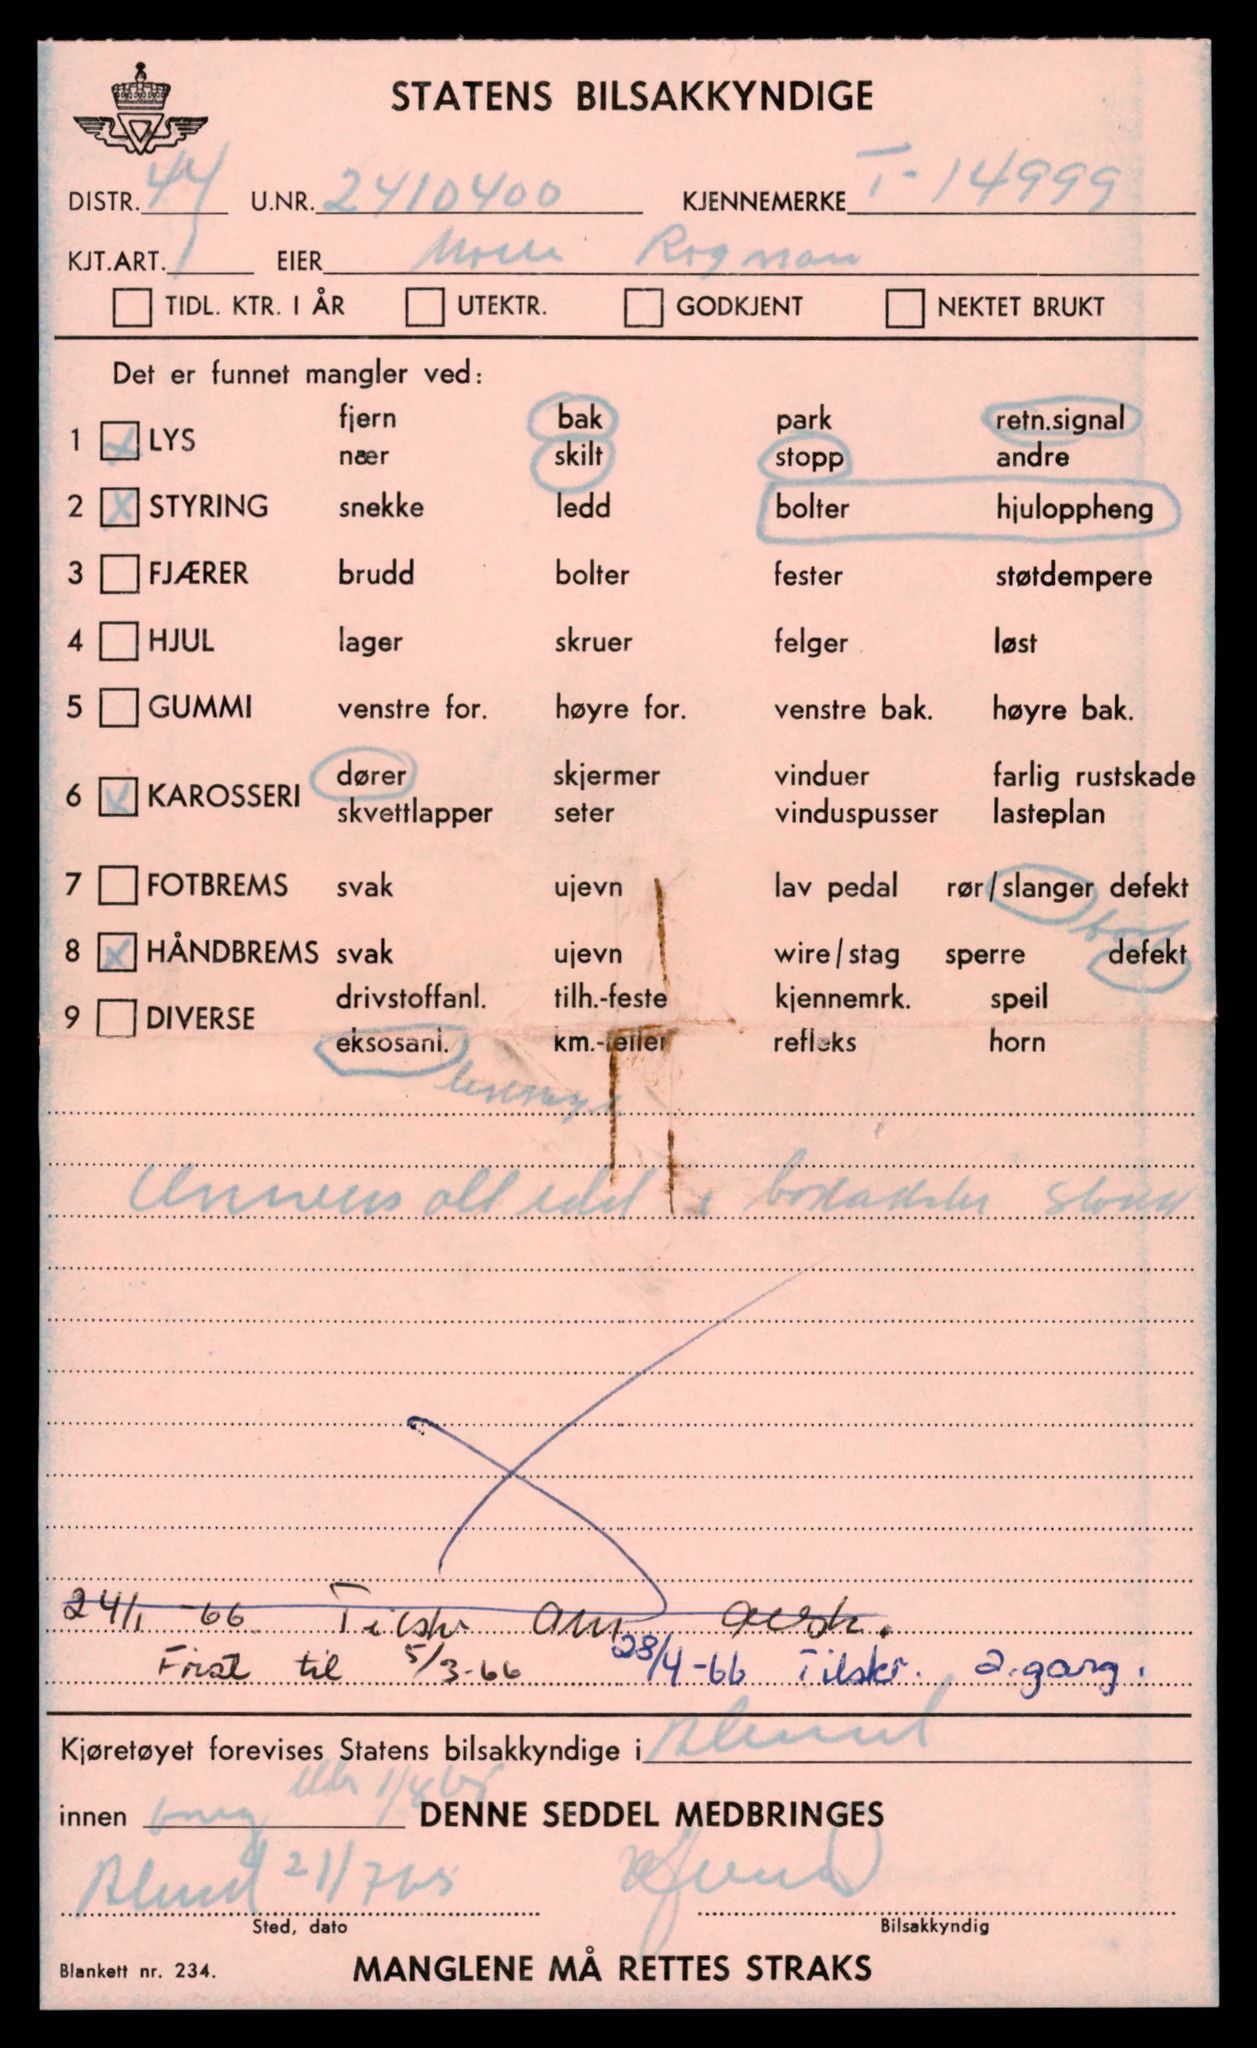 STATENS BILSAKKYNDIGE
DISTR. 44 U.NR. 2410400 KJENNEMERKE T-14999
KJT.ART. 1 EIER Rogman
TIDL. KTR. I ÅR UTEKTR. GODKJENT NEKTET BRUKT
Det er funnet mangler ved:
fjern bak park retn.signal
1 x LYS
nær skilt stopp andre
2 x STYRING snekke ledd bolter hjuloppheng
3 FJÆRER brudd bolter fester støtdempere
4 HJUL lager skruer felger løst
5 GUMMI venstre for. høyre for. venstre bak. høyre bak.
dører skjermer vinduer farlig rustskade
6 x KAROSSERI
skvettlapper seter vinduspusser lasteplan
7 FOTBREMS svak ujevn lav pedal rør/slanger defekt
8 x HÅNDBREMS svak ujevn wire/stag sperre defekt
drivstoffanl. tilh.-feste kjennemrk. speil
9 DIVERSE
eksosanl. km.-teller refleks horn
24/1 -66 Tilskr
Frist til 5/3-66 28/4-66 Tilskr. 2.gang.
Kjøretøyet forevises Statens bilsakkyndige i Ålesund
innen DENNE SEDDEL MEDBRINGES
Ålesund 21/7 65
Sted, dato Bilsakkyndig
Blankett nr. 234. MANGLENE MÅ RETTES STRAKS